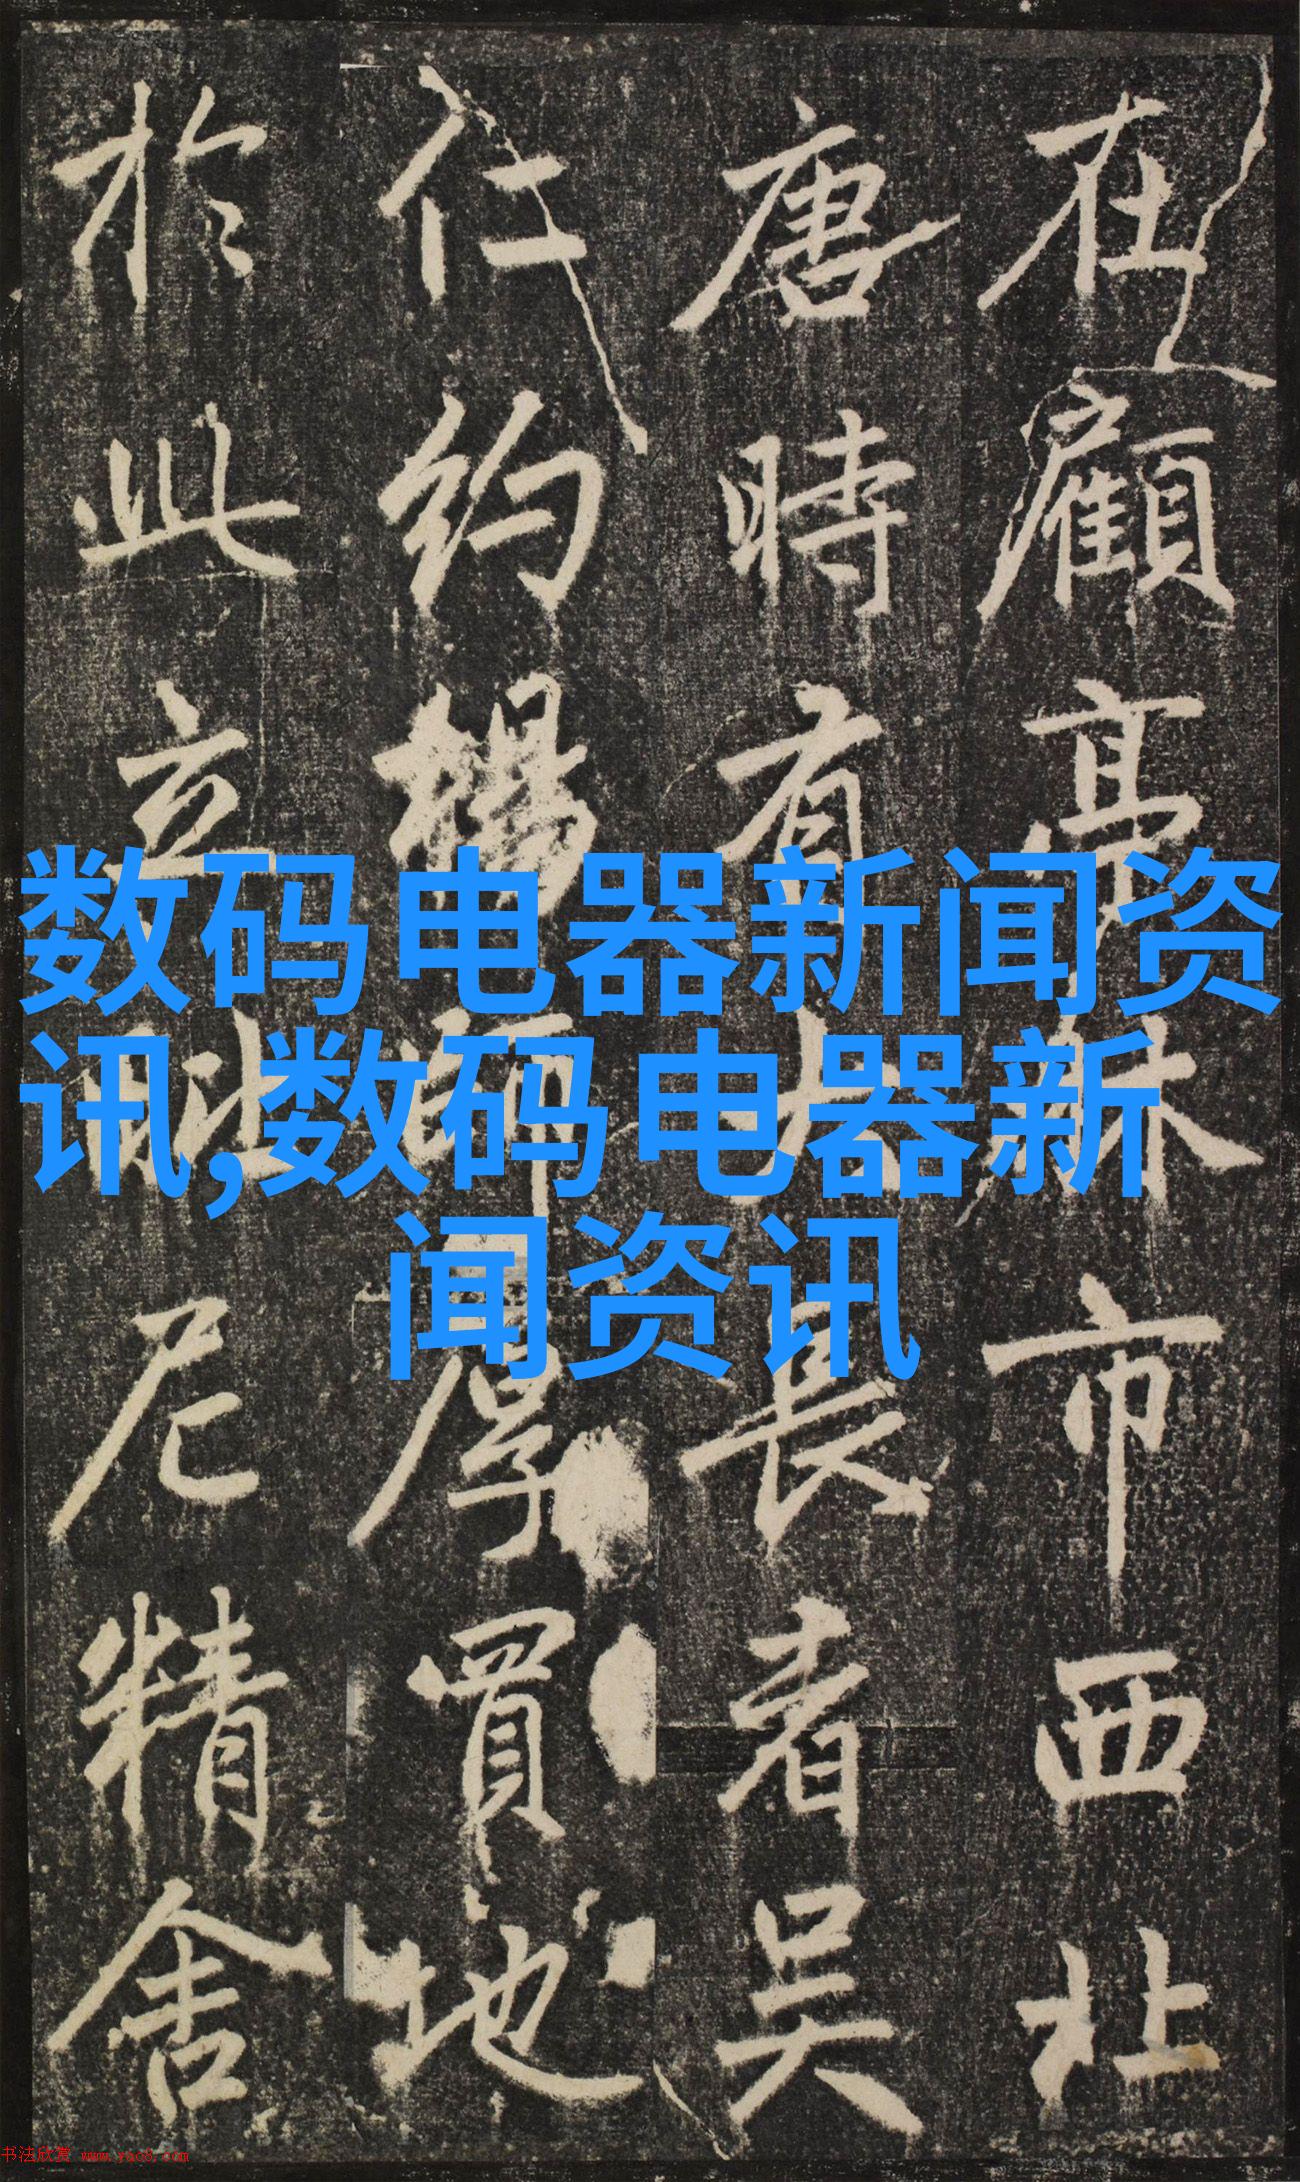 在顧亭林市西北
唐時有大長者吳
仁約楊師厚買地
於此立毗尼精舍
数码电器新闻资
讯,数码电器新
闻资讯
书法欣赏 www.yac8.com